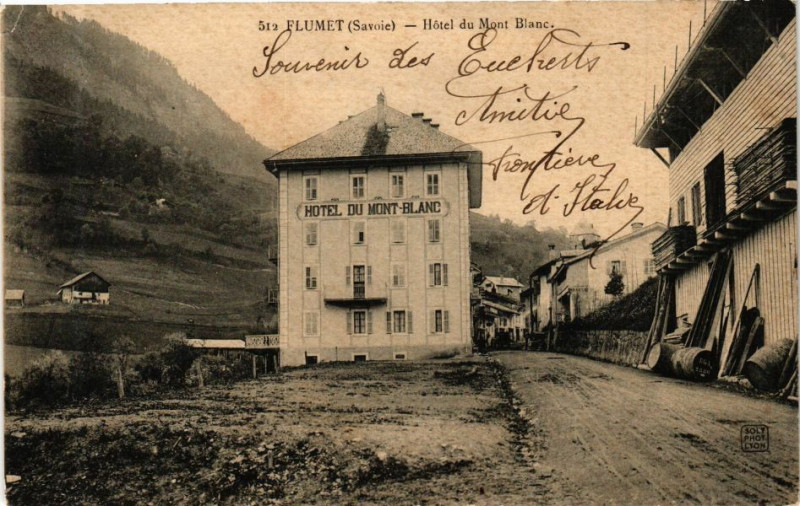 512 FLUMET (Savoie) — Hôtel du Mont Blanc.
Souvenir des
Amitié
Frontière
d'Italie
HOTEL DU MONT-BLANC
SOLY
PHOT
LYON